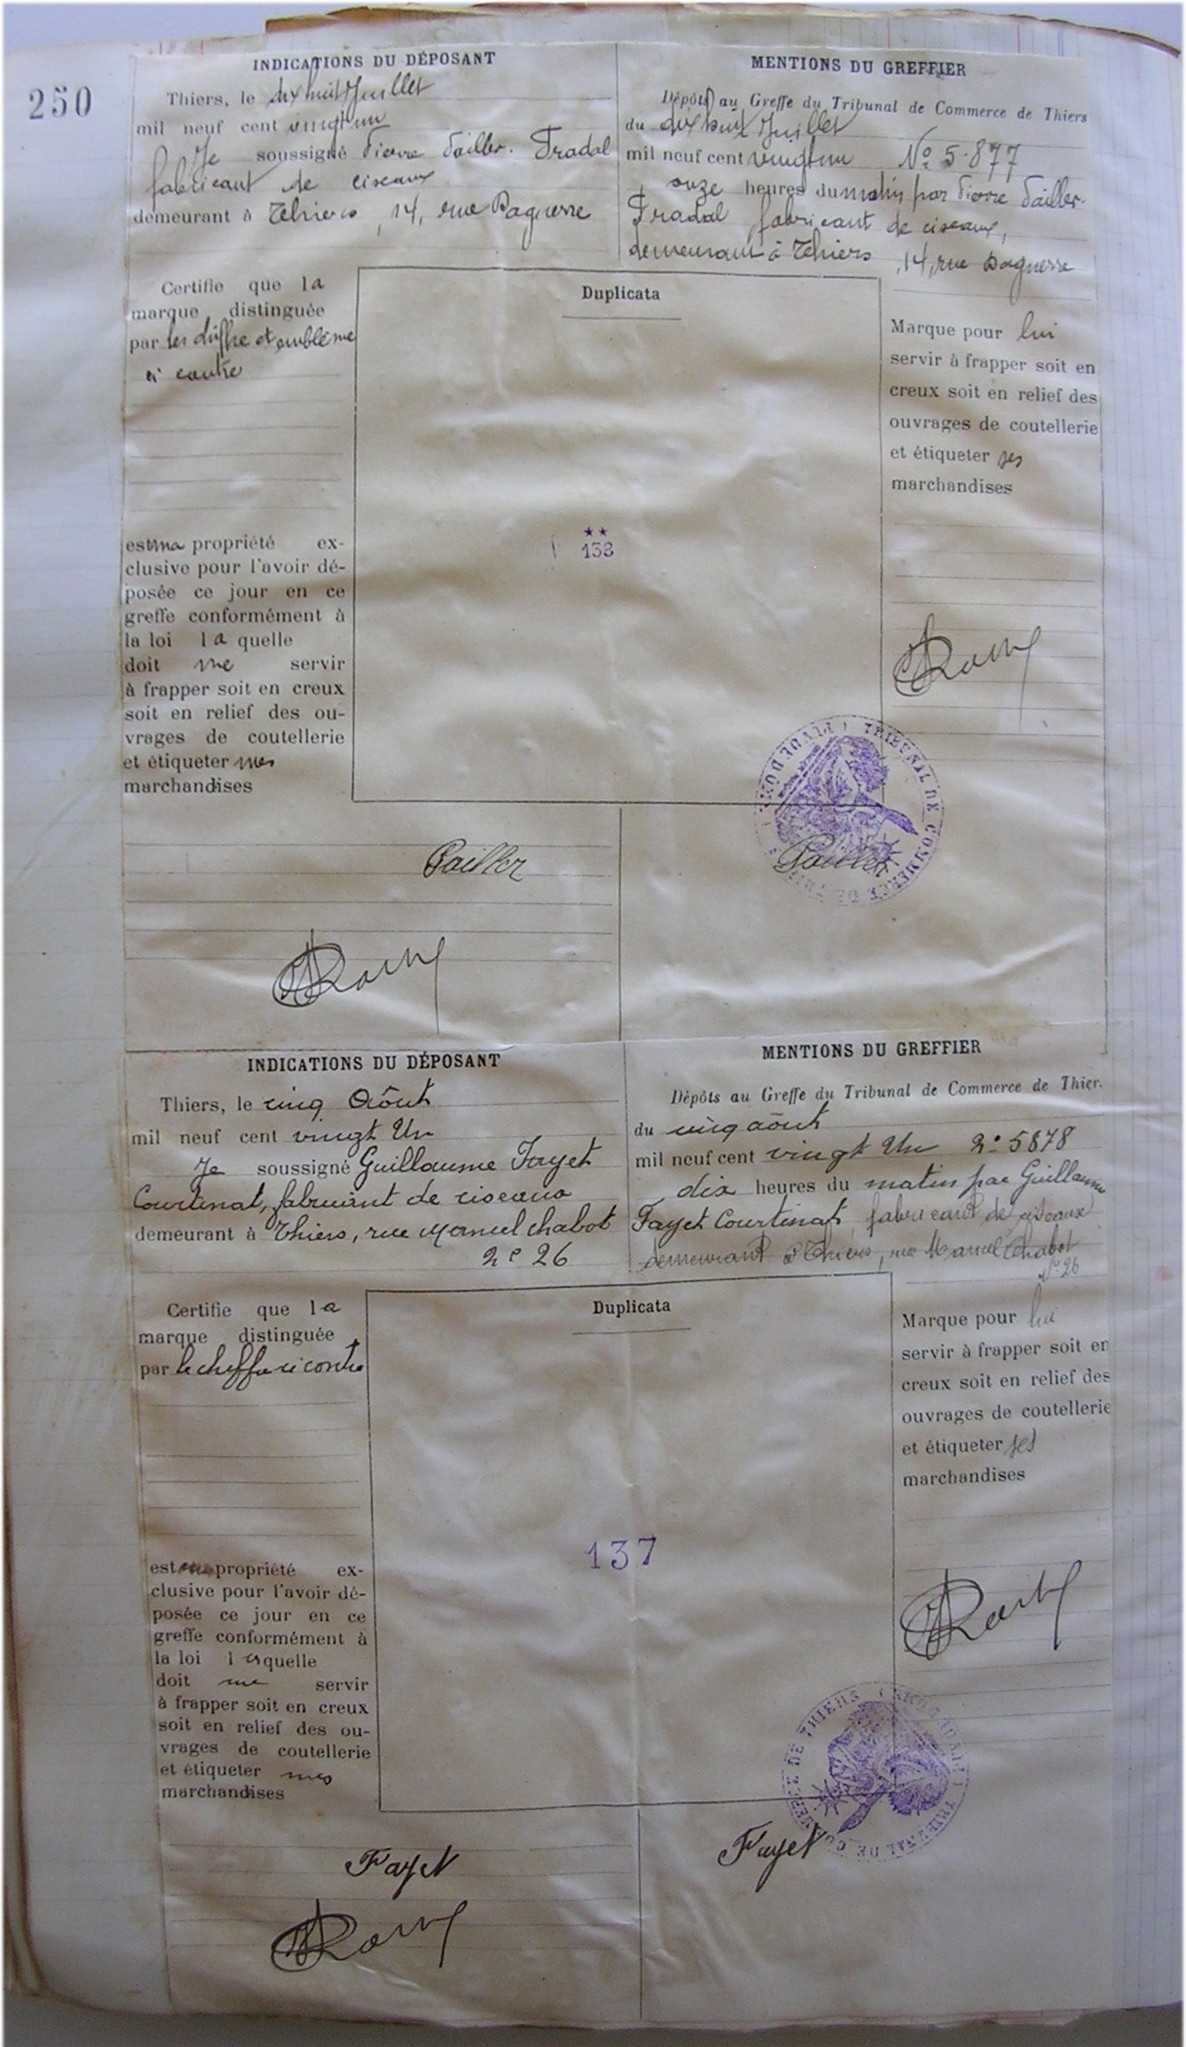 250
INDICATIONS DU DÉPOSANT
Thiers, le dix huit Juillet
mil neuf cent vingt un
Je soussigné Pierre Pailler-Pradal
fabricant de ciseaux
demeurant à Thiers, 14, rue Daguerre
MENTIONS DU GREFFIER
Dépôts au Greffe du Tribunal de Commerce de Thiers
du dix huit Juillet
mil neuf cent vingt un No 5.877
onze heures du matin par Pierre Pailler-
Pradal fabricant de ciseaux,
demeurant à Thiers, 14, rue Daguerre
Certifie que la
marque distinguée
par les chiffre et emblème
ci contre
est ma propriété ex-
clusive pour l'avoir dé-
posée ce jour en ce
greffe conformément à
la loi la quelle
doit me servir
à frapper soit en creux
soit en relief des ou-
vrages de coutellerie
et étiqueter mes
marchandises
Duplicata
★★
Marque pour lui
servir à frapper soit en
creux soit en relief des
ouvrages de coutellerie
et étiqueter ses
marchandises
TRIBUNAL DE COMMERCE DE THIERS
Pailler
Pailler
INDICATIONS DU DÉPOSANT
Thiers, le cinq Août
mil neuf cent vingt Un
Je soussigné Guillaume Fayet
Courtinat, fabricant de ciseaux
demeurant à Thiers, rue Marcel Chabot
No 26
MENTIONS DU GREFFIER
Dépôts au Greffe du Tribunal de Commerce de Thier.
du cinq août
mil neuf cent vingt Un No 5878
dix heures du matin par Guillaume
Fayet Courtinat, fabricant de ciseaux
demeurant à Thiers, rue Marcel Chabot
No 26
Certifie que la
marque distinguée
par le chiffre ci contre
est ma propriété ex-
clusive pour l'avoir dé-
posée ce jour en ce
greffe conformément à
la loi laquelle
doit me servir
à frapper soit en creux
soit en relief des ou-
vrages de coutellerie
et étiqueter mes
marchandises
Duplicata
137
Marque pour lui
servir à frapper soit en
creux soit en relief des
ouvrages de coutellerie
et étiqueter ses
marchandises
TRIBUNAL DE COMMERCE DE THIERS
Fayet
Fayet